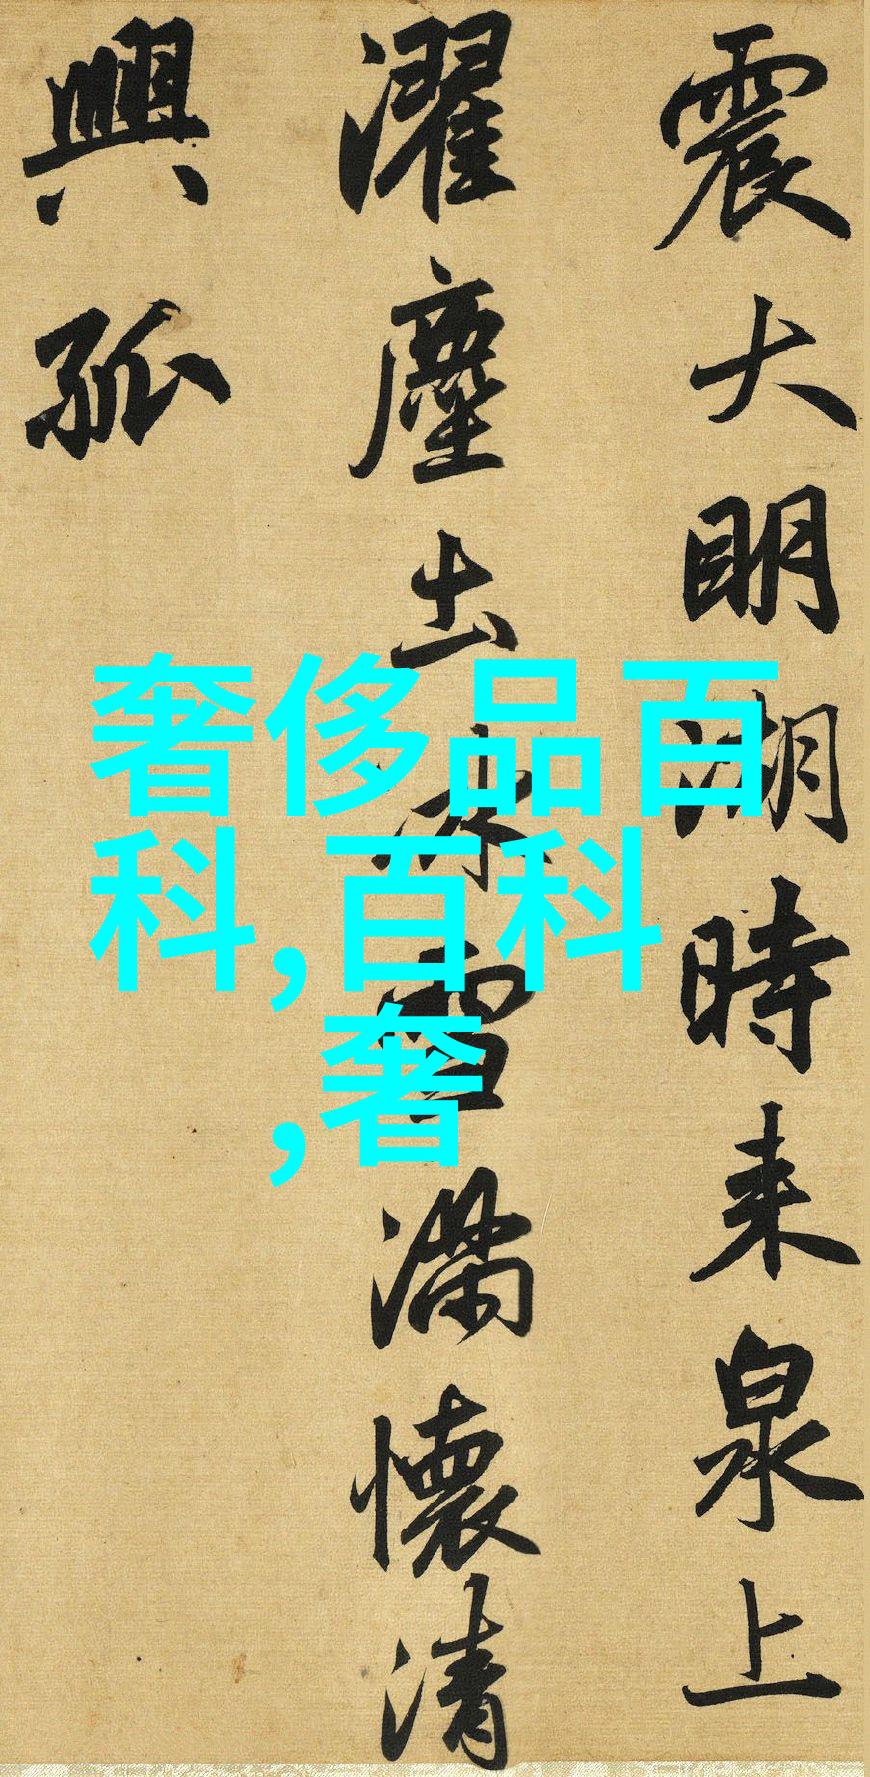 震大明湖時来泉上
濯塵出冰雪滿懷清
興孤
奢侈品百
科,百科
,奢